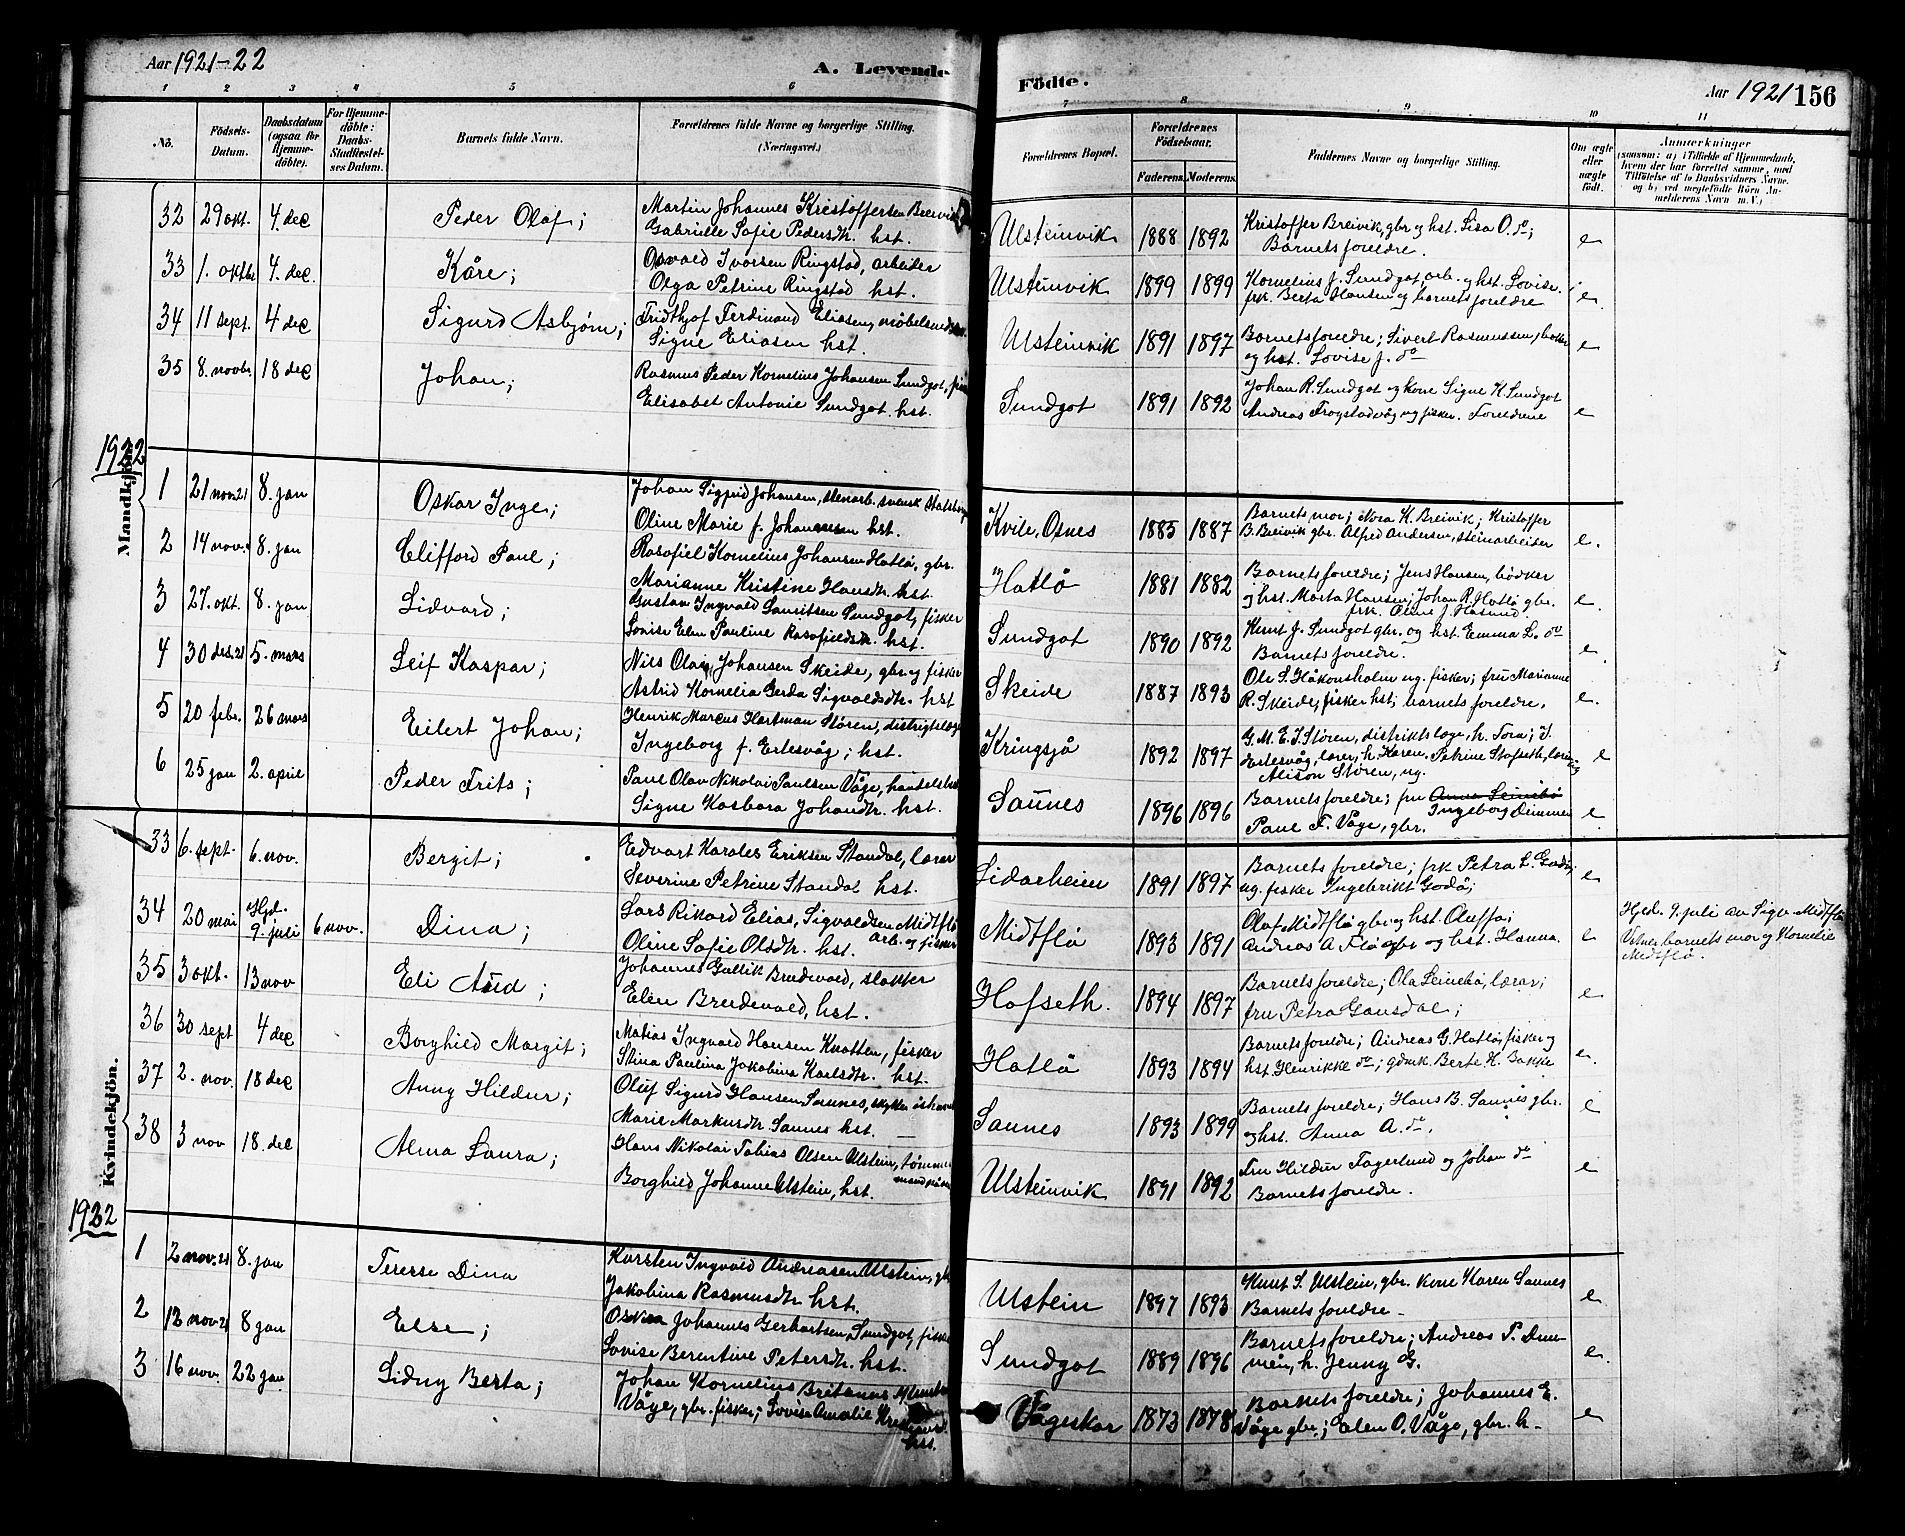 Aar 1921-22
A. Levende Födte.
Aar 1921 156
1 2 3 4 5 6 7 8 9 10 11
No.
Födsels-Datum.
Daabsdatum (ogsaa for Hjemme-döbte).
For Hjemme-döbte: Daabs-Stadfæstel-ses Datum.
Barnets fulde Navn.
Forældrenes fulde Navne og borgerlige Stilling. (Næringsvei.)
Forældrenes Bopæl.
Forældrenes Födselsaar.
Faderens. Moderens.
Faddernes Navne og borgerlige Stilling.
Om ægte eller uægte födt.
Anmærkninger
(saasom: a) i Tilfælde af Hjemmedaab,
hvem der har forrettet samme, med
Tilföielse af to Daabsvidners Navne.
og b) ved uegtefödte Börn An-
melderens Navn m. V.)
32 29 okt. 4. dec Peder Olaf; Martin Johannes Kristoffersen Breivik Ulsteinvik 1888 1892 Kristoffer Breivik, gbr og hst. Lisa O. do; e
Gabrielle Sofie Pedersdtr. hst. Barnets foreldre.
33 1. oktbr 4. dec. Kåre; Osvald Ivarsen Ringstad, arbeider Ulsteinvik 1899 1899 Kornelius J. Sundgot, arb. og hst. Lovise. e
Olga Petrine Ringstad hst. frk. Berta Hansen og barnets foreldre
34 11 sept. 4 dec Sigurd Asbjörn; Fridthjof Ferdinand Eliasen, Ulsteinvik 1891 1897 Barnets foreldre; Sivert Rasmussen, e
Signe Eliasen hst. og hst. Lovise J. do
35 8. novbr. 18 dec Johan; Rasmus Peder Kornelius Johansen Sundgot, Sundgot 1891 1892 Johan R. Sundgot og kone Signe K. Sundgot e
Elisabet Antonie Sundgot hst. Andreas Frøystadvåg ug fisker. Foreldrene
1922
Mandkjön.
1 21 nov. 21 8. jan Oskar Inge; Johan Sigfrid Johansen, stenarb. svensk Kvile, Osnes 1885 1887 Barnets mor; Nora K. Breivik; Kristoffer e.
Oline Marie f. Johannessen hst. B. Breivik gbr. Alfred Andersen, steinarbeider
2 14 nov. 8. jan Clifford Paul; Rasofiel Kornelius Johansen Hatlö, gbr. Hatlö 1881 1882 Barnets foreldre; Jens Hansen, bödker e.
Marianne Kristine Hansdtr. hst. og hst. Marta Hansen; Johan R. Hatlö gbr.
frk. Oline J. Hasund
3 27. okt. 8. jan Sidvard; Gustav Ingvald Lauritsen Sundgot, fisker Sundgot 1890 1892 Knut J. Sundgot gbr. og hst. Emma L. do e.
Lovise Elen Pauline Rasofieldtr. hst. Barnets foreldre.
4 30 des. 21 5. mars Leif Kaspar; Nils Olai Johansen Skeide, gbr. og fisker Skeide 1887 1893 Ole S. Håkonsholm ug. fisker; fru Marianne e.
Astrid Kornelia Gerda Sigvaldsdtr. hst R. Skeide, fisker hst; barnets foreldre.
5 20 febr. 26 mars Eilert Johan; Henrik Marcus Hartman Stören, distrigtslæge Kringsjå 1892 1897 G. M. E. I. Stören, distriktslæge, h. Tora; I. e
Ingeborg f. Ertesvåg; hst. Ertesvåg, lærer, h. Karen. Petrine Stafseth,
Alison Stören, ug.
6 25 jan 2. april Peder Frits; Paul Olav Nikolai Paulsen Våge, Saunes 1896 1896 Barnets foreldre; fru Ingeborg Dimmen e
Signe Kasbara Johandtr. hst. Paul F. Våge, gbr.
Kvindekjön.
33 6. sept. 6. nov. Bergit; Edvart Karoles Eriksen Standal, lærar Lidarheim 1891 1897 Barnets foreldre; frk Petra L. Godö; e
Severine Petrine Standal hst. ug. fisker Ingebrikt Godö;
34 20 mai Hjd. 9. juli 6 nov. Dina; Lars Rikard Elias Sigvaldsen Midtflö arb. og fisker Midtflö 1893 1891 Olaf Midtflö gbr og hst. Oluffa; e Hjd. 9. juli av Sign Midtflö
Oline Sofie Olsdtr. hst. Andreas A. Flö gbr og hst. Hanna. Vitner barnets mor og Kornelie
Midtflö.
35 3 okt. 13 nov Eli Aud; Johannes Gullik Brudevold, slakter Hofseth. 1894 1897 Barnets foreldre; Ola Leinebö, lærar; e
Elen Brudevold, hst. fru Petra Gausdal;
36 30 sept 4 dec Borghild Margit; Matias Ingvald Hansen Knotten, fisker Hatlö 1893 1894 Barnets foreldre; Andreas G. Hatlö, fisker og e.
Stina Paulina Jakobina Karlsdtr. hst. hst. Henrikke do; gdmk. Berte H. Bakke
37 2. nov. 18 dec Anny Hildur; Oluf Sigurd Hansen Saunes, Saunes 1893 1899 Barnets foreldre; Hans B. Saunes gbr. e
Marie Markusdtr. Saunes hst. og hst. Anna A. do.
38 3 nov 18. dec Alma Laura; Hans Nikolai Tobias Olsen Ulstein, Ulsteinvik 1891 1892 Fru Hildur Fagerlund og Johan do e
Borghild Johanne Ulstein, hst. Barnets foreldre.
1922
1 2 nov. 21 8. jan Terese Dina Karsten Ingvald Andreasen Ulstein, Ulstein 1897 1893 Knut S. Ulstein, gbr. kone Karen Saunes e
Jakobina Rasmusdtr hst. Barnets foreldre -
2 12 nov 21 8 jan Else; Oskar Johannes Gerhartsen Sundgot, fisker Sundgot 1889 1896 Barnets foreldre; Andreas P. Dim- e.
Lovise Berentine Petersdtr. hst. men, h. Jenny G.
3 16 nov. 22 jan Lidny Berta; Johan Kornelius Britanus Vågeskar 1873 1878 Barnets foreldre; Johannes E. e
Våge, gbr. fisker; Lovise Amalie hst. Våge gbr.; Elen O. Våge, gbr. h-